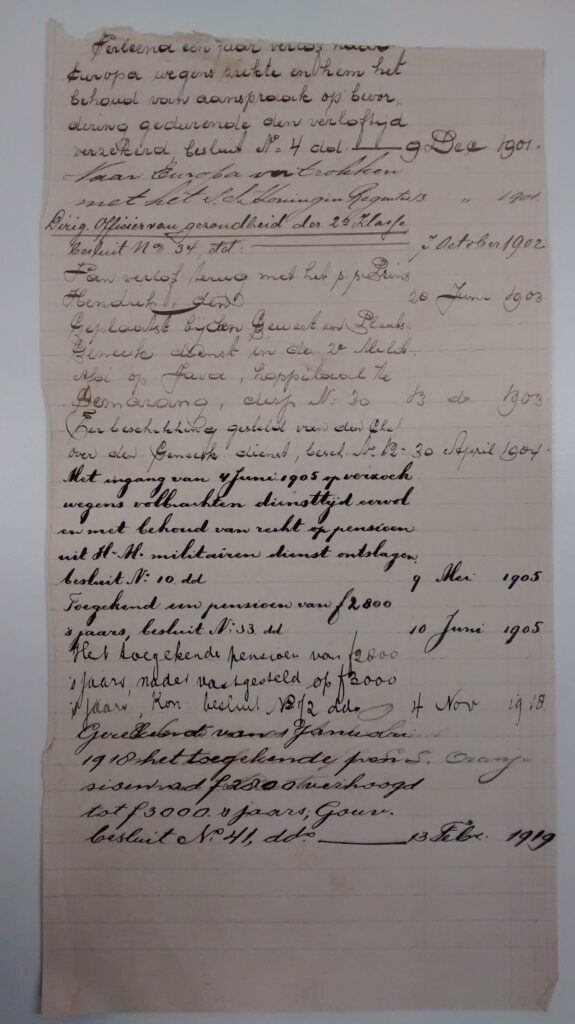 Verleend een jaar verlof naar
Europa wegens ziekte en hem het
behoud van aanspraak op bevor„
dering gedurende den verloftijd
verzekerd, besluit No 4 dd. 9 Dec 1901.
Naar Europa vertrokken
met het s.s. Koningin Regentes 13 „ 1901.
Dirig. Officier van gezondheid der 2e Klasse
besluit No 34 dd: 7 October 1902
Van verlof terug met het p.p. Prins
Hendrik, den 20 Juni 1903
Geplaatst bij den Gewest en Plaats.
Geneesk dienst in de 2e Milit.
Afd op Java, hospitaal te
Semarang, No: 30 13 do 1903
Ter beschikking gesteld van den Chef
over den Geneesk dienst, besch. No. 12 - 30 April 1904.
Met ingang van 4 Juni 1905 op verzoek
wegens volbrachten diensttijd eervol
en met behoud van recht op pensioen
uit H.M. militairen dienst ontslagen,
besluit No: 10 dd 9 Mei 1905
Toegekend een pensioen van f 2800
's jaars, besluit No: 33 dd 10 Juni 1905
Het toegekende pensioen van f2800
's jaars, nader vastgesteld op f3000
's jaars, Kon. besluit No 12 ddo 4 Nov 1918
Gerekend van 1 Januari
1918 het toegekende pen
sioen ad f 2800 verhoogd
tot f 3000 's jaars; Gouv.
besluit No 41, ddo 13 Febr. 1919